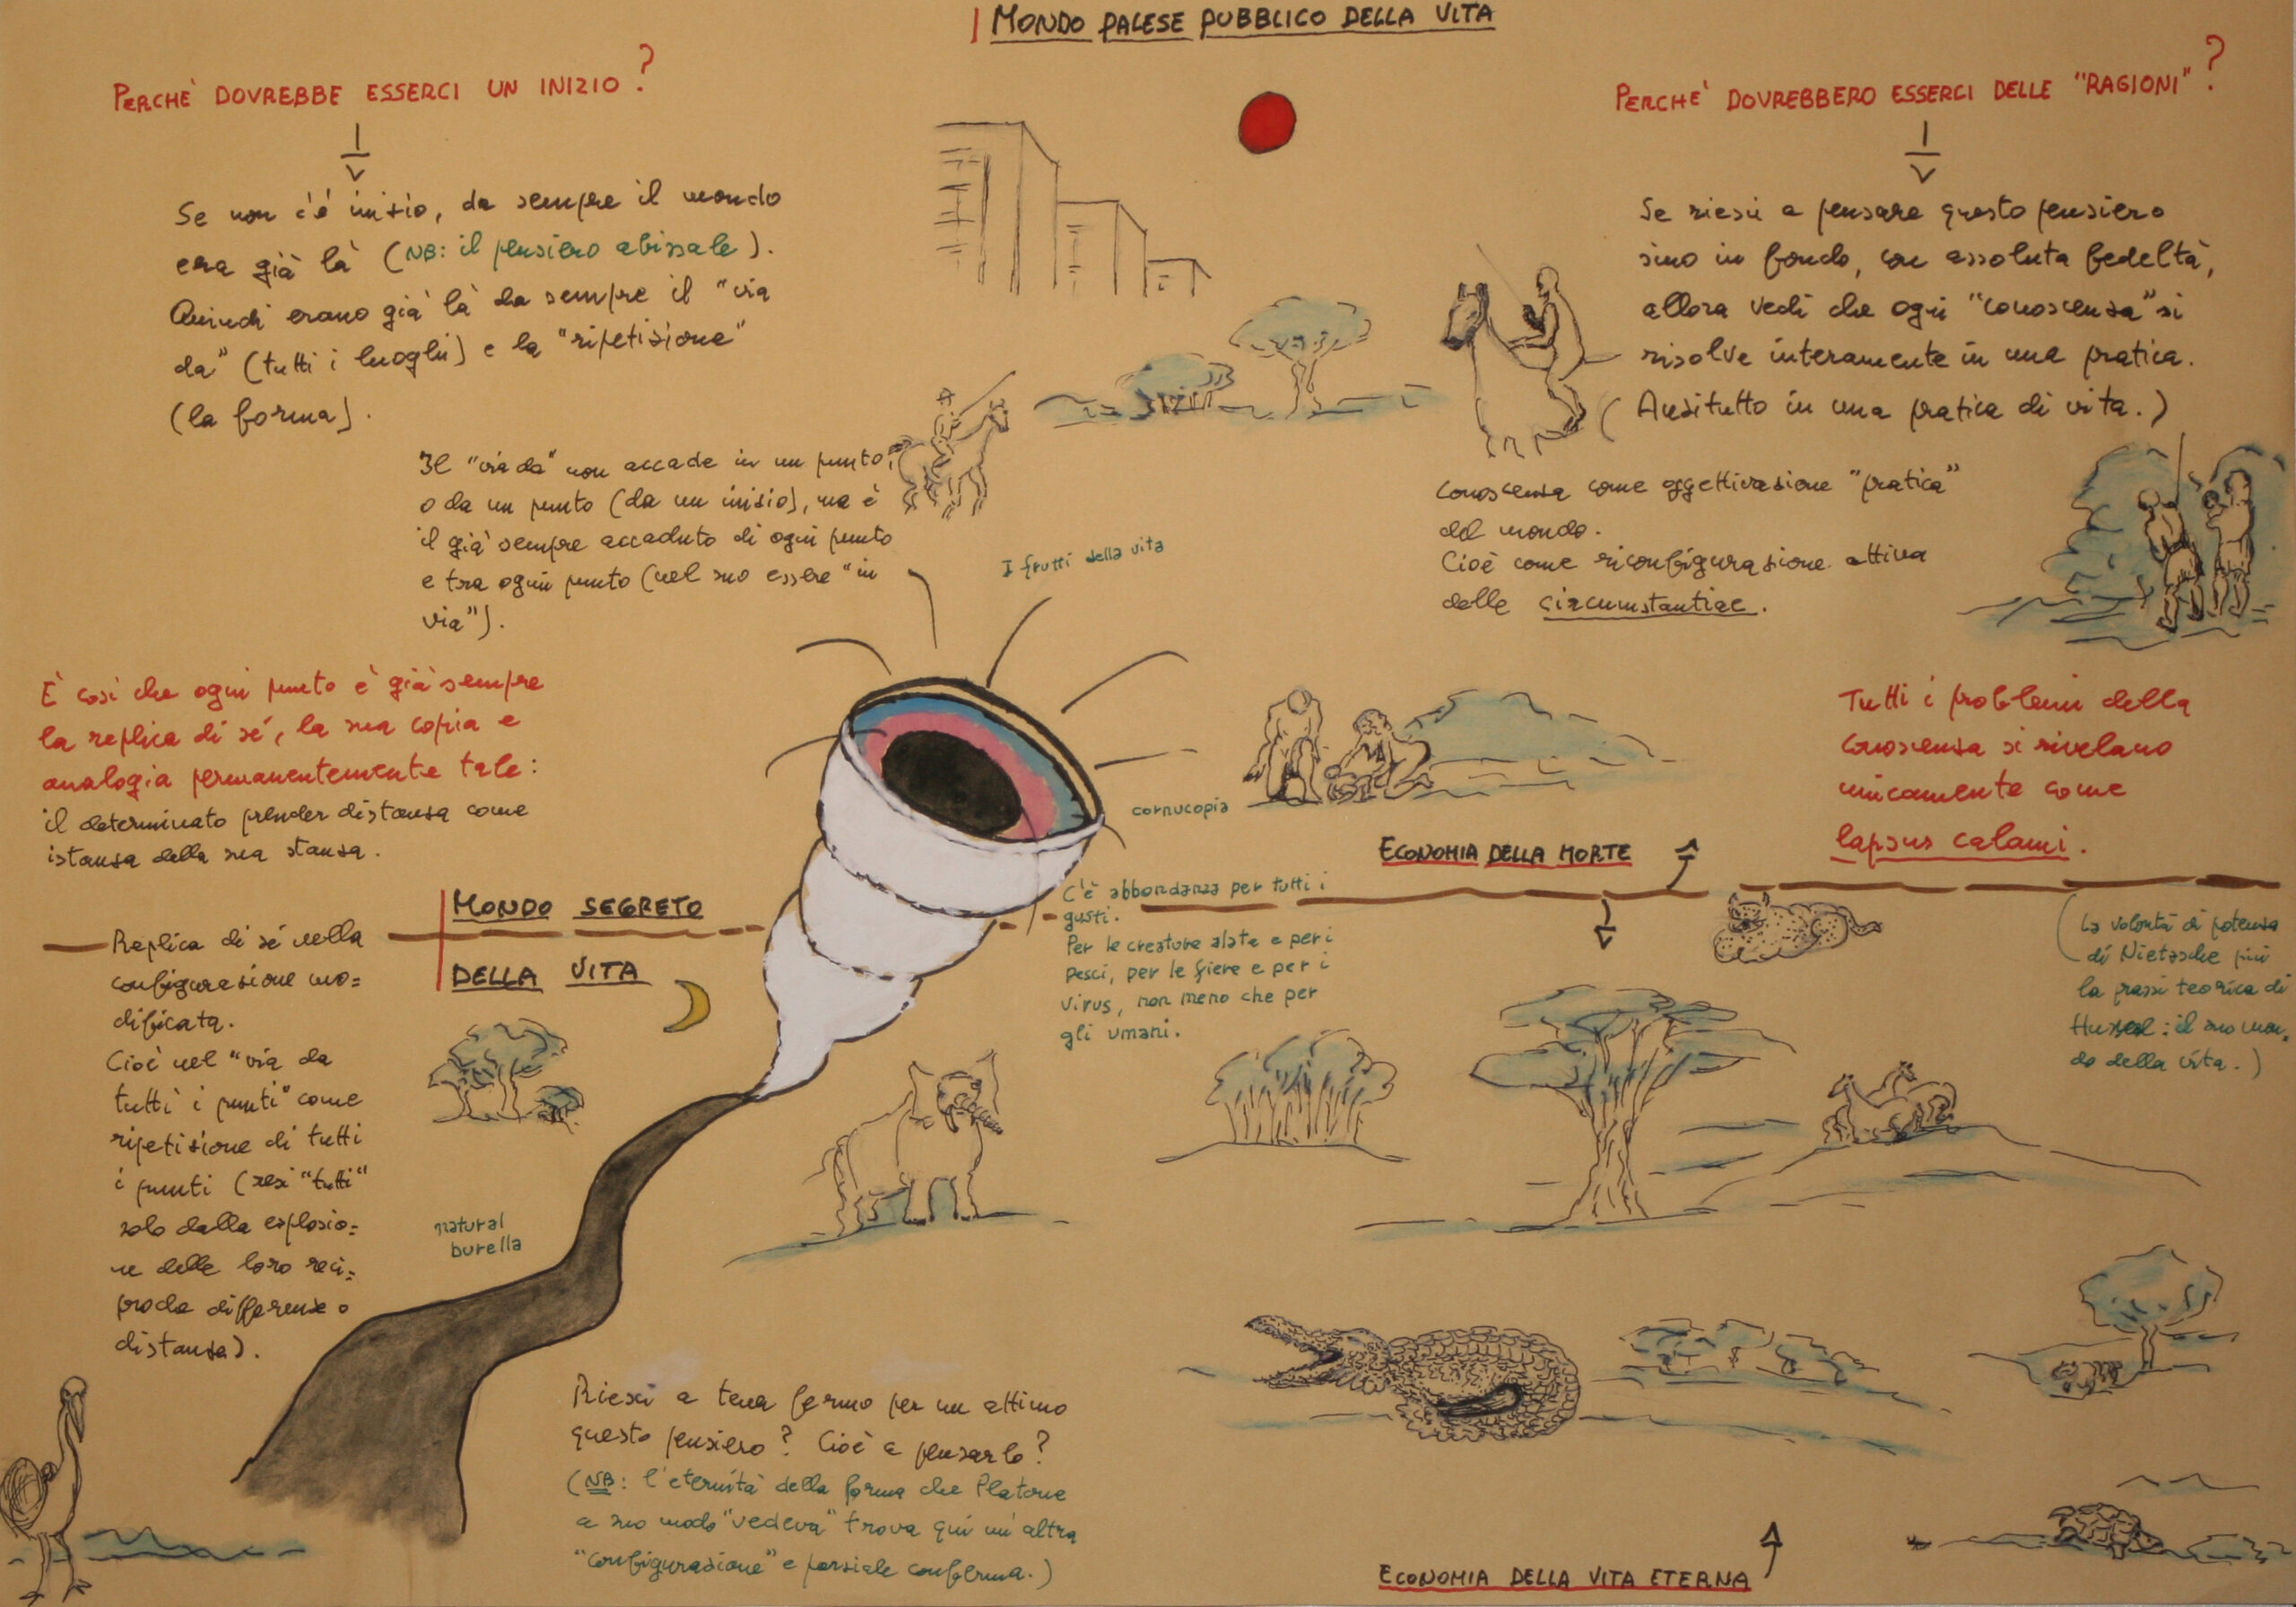 MONDO PALESE PUBBLICO DELLA VITA
PERCHÈ DOVREBBE ESSERCI UN INIZIO?
Se non c'è inizio, da sempre il mondo
era già là (NB: il pensiero abissale).
Quindi erano già là da sempre il "via
da" (tutti i luoghi) e la "ripetizione"
(la forma).
Il "via da" non accade in un punto,
o da un punto (da un inizio), ma è
il già sempre accaduto di ogni punto
e tra ogni punto (nel suo essere "in
via").
È così che ogni punto è già sempre
la replica di sé, la sua copia e
analogia permanentemente tale:
il determinato prender distanza come
istanza della sua stanza.
Replica di sé nella
configurazione mo=
dificata.
Cioè nel "via da
tutti i punti" come
ripetizione di tutti
i punti (resi "tutti"
solo dalla esplosio=
ne delle loro reci=
proche differenze o
distanze).
MONDO SEGRETO
DELLA VITA
natural
burella
I frutti della vita
cornucopia
C'è abbondanza per tutti i
gusti.
Per le creature alate e per i
pesci, per le fiere e per i
virus, non meno che per
gli umani.
Riesci a tener fermo per un attimo
questo pensiero? Cioè a pensarlo?
(NB: l'eternità della forma che Platone
a suo modo "vedeva" trova qui un'altra
"configurazione" e parziale conferma.)
PERCHE' DOVREBBERO ESSERCI DELLE "RAGIONI"?
Se riesci a pensare questo pensiero
sino in fondo, con assoluta fedeltà,
allora vedi che ogni "conoscenza" si
risolve interamente in una pratica.
(Anzitutto in una pratica di vita.)
Conoscenza come oggettivazione "pratica"
del mondo.
Cioè come riconfigurazione attiva
delle circumstantiae.
Tutti i problemi della
conoscenza si rivelano
unicamente come
lapsus calami.
ECONOMIA DELLA MORTE
(La volontà di potenza
di Nietzsche più
la prassi teorica di
Husserl: il suo mon=
do della vita.)
ECONOMIA DELLA VITA ETERNA